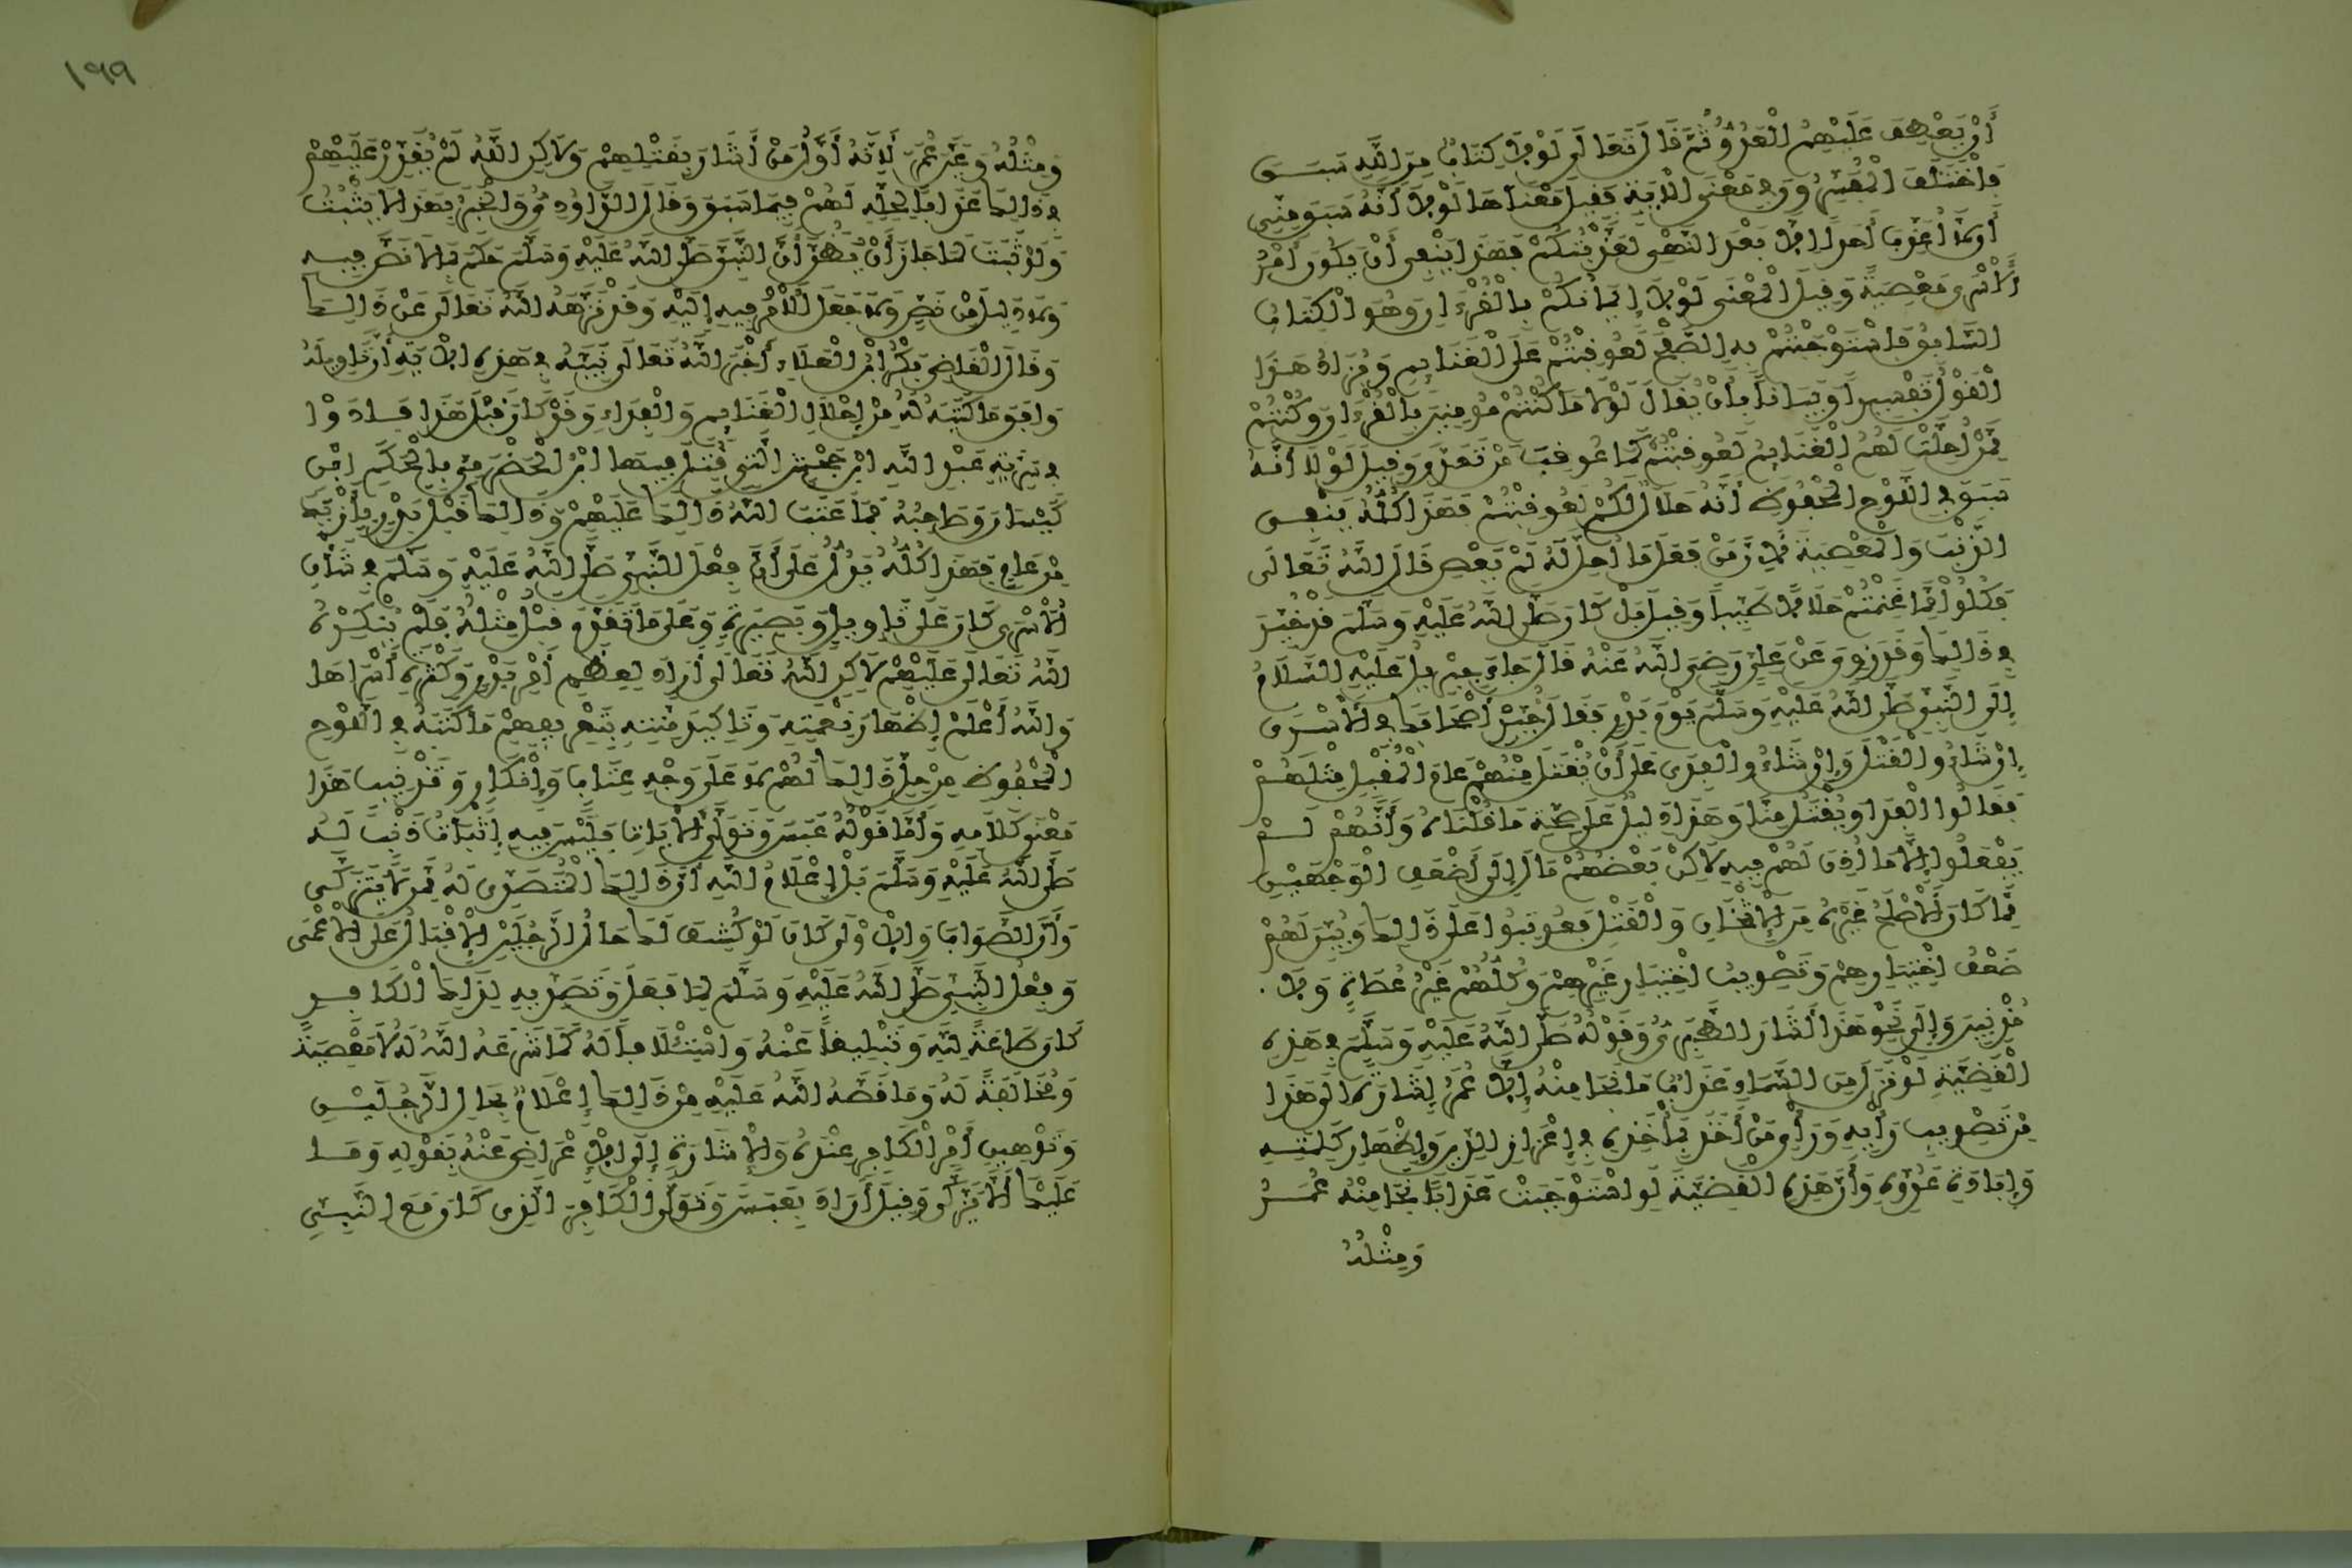 أَنْ يَعْطِفَ عَلَيْهِمُ الْعَدُوُّ ثُمَّ قَالَ تَعَالَى لَوْلَا كِتَابٌ مِنَ اللَّهِ سَبَقَ
فَاخْتَلَفَ الْمُفَسِّرُونَ فِي مَعْنَى الْآيَةِ فَقِيلَ مَعْنَاهَا لَوْلَا أَنَّهُ سَبَقَ مِنِّي
أَنْ لَا أُعَذِّبَ أَحَدًا إِلَّا بَعْدَ النَّهْيِ لَعَذَّبْتُكُمْ فَهَذَا يَنْفِي أَنْ يَكُونَ أَمْرُ
الْأَسْرَى مَعْصِيَةً وَقِيلَ الْمَعْنَى لَوْلَا إِيمَانُكُمْ بِالْقُرْءَانِ وَهُوَ الْكِتَابُ
السَّابِقُ فَاسْتَوْجَبْتُمْ بِهِ الصَّفْحَ لَعُوقِبْتُمْ عَلَى الْغَنَايِمِ وَيُزَادُ هَذَا
الْقَوْلُ تَفْسِيرًا وَبَيَانًا بِأَنْ يُقَالَ لَوْلَا مَا كُنْتُمْ مُومِنِينَ بِالْقُرْءَانِ وَكُنْتُمْ
مِمَّنْ أُحِلَّتْ لَهُمُ الْغَنَايِمُ لَعُوقِبْتُمْ كَمَا عُوقِبَ مَنْ تَعَدَّى وَقِيلَ لَوْلَا أَنَّهُ
سَبَقَ فِي اللَّوْحِ الْمَحْفُوظِ أَنَّهَا حَلَالٌ لَكُمْ لَعُوقِبْتُمْ فَهَذَا كُلُّهُ يَنْفِي
الذَّنْبَ وَالْمَعْصِيَةَ لِأَنَّ مَنْ فَعَلَ مَا أُحِلَّ لَهُ لَمْ يَعْصِ قَالَ اللَّهُ تَعَالَى
فَكُلُوا مِمَّا غَنِمْتُمْ حَلَالًا طَيِّبًا وَقِيلَ بَلْ كَانَ صَلَّى اللَّهُ عَلَيْهِ وَسَلَّمَ قَدْ خُيِّرَ
فِي ذَالِكَ وَقَدْ رُوِيَ عَنْ عَلِيٍّ رَضِيَ اللَّهُ عَنْهُ قَالَ جَاءَ جِبْرِيلُ عَلَيْهِ السَّلَامُ
إِلَى النَّبِيِّ صَلَّى اللَّهُ عَلَيْهِ وَسَلَّمَ يَوْمَ بَدْرٍ فَقَالَ خَيِّرْ أَصْحَابَكَ فِي الْأَسْرَى
إِنْ شَاءُوا الْقَتْلَ وَإِنْ شَاءُوا الْفِدَى عَلَى أَنْ يُقْتَلَ مِنْهُمْ عَامَ الْمُقْبِلِ مِثْلُهُمْ
فَقَالُوا الْفِدَا وَيُقْتَلُ مِنَّا وَهَذَا دَلِيلٌ عَلَى صِحَّةِ مَا قُلْنَاهُ وَأَنَّهُمْ لَمْ
يَفْعَلُوا إِلَّا مَا أُذِنَ لَهُمْ فِيهِ لَاكِنْ بَعْضُهُمْ مَالَ إِلَى أَضْعَفِ الْوَجْهَيْنِ
مِمَّا كَانَ الْأَصْلَحُ غَيْرَهُ مِنَ الْإِثْخَانِ وَالْقَتْلِ فَعُوتِبُوا عَلَى ذَالِكَ وَبُيِّنَ لَهُمْ
ضَعْفُ اخْتِيَارِهِمْ وَتَصْوِيبُ اخْتِيَارِ غَيْرِهِمْ وَكُلُّهُمْ غَيْرُ عُصَاةٍ وَلَا
مُذْنِبِينَ وَإِلَى نَحْوِ هَذَا أَشَارَ الطَّبَرِيُّ وَقَوْلُهُ صَلَّى اللَّهُ عَلَيْهِ وَسَلَّمَ فِي هَذِهِ
الْقَضِيَّةِ لَوْ نَزَلَ مِنَ السَّمَاءِ عَذَابٌ مَا نَجَا مِنْهُ إِلَّا عُمَرُ إِشَارَةٌ إِلَى هَذَا
مِنْ تَصْوِيبِ رَأْيِهِ وَرَأْيِ مَنْ أَخَذَ بِمَأْخَذِهِ فِي إِعْزَازِ الدِّينِ وَإِظْهَارِ كَلِمَتِهِ
وَإِبَادَةِ عَدُوِّهِ وَأَنَّ هَذِهِ الْقَضِيَّةَ لَوِ اسْتَوْجَبَتْ عَذَابًا نَجَا مِنْهُ عُمَرُ
وَمِثْلُهُ
١٩٩
وَمِثْلُهُ وَعَيَّنَ عُمَرَ لِأَنَّهُ أَوَّلُ مَنْ أَشَارَ بِقَتْلِهِمْ وَلَاكِنِ اللَّهُ لَمْ يُقَدِّرْ عَلَيْهِمْ
فِي ذَالِكَ عَذَابًا لِحِلِّهِ لَهُمْ فِيمَا سَبَقَ وَقَالَ الدَّاوُدِيُّ وَالْخَبَرُ بِهَذَا لَا يَثْبُتُ
وَلَوْ ثَبَتَ لَمَا جَازَ أَنْ يُظَنَّ أَنَّ النَّبِيَّ صَلَّى اللَّهُ عَلَيْهِ وَسَلَّمَ حَكَمَ بِمَا لَا نَصَّ فِيهِ
وَلَا دَلِيلَ مِنْ نَصٍّ وَلَا جُعِلَ الْأَمْرُ فِيهِ إِلَيْهِ وَقَدْ نَزَّهَهُ اللَّهُ تَعَالَى عَنْ ذَالِكَ
وَقَالَ الْقَاضِي بَكْرُ ابْنُ الْعَلَاءِ أَخْبَرَ اللَّهُ تَعَالَى نَبِيَّهُ فِي هَذِهِ الْآيَةِ أَنَّ تَاوِيلَهُ
وَافَقَ مَا كَتَبَهُ لَهُ مِنْ إِحْلَالِ الْغَنَايِمِ وَالْفِدَاءِ وَقَدْ كَانَ قَبْلَ هَذَا فَادَوْا
فِي سَرِيَّةِ عَبْدِ اللَّهِ ابْنِ جَحْشٍ الَّتِي قُتِلَ فِيهَا ابْنُ الْحَضْرَمِيِّ بِالْحَكَمِ ابْنِ
كَيْسَانَ وَصَاحِبِهِ فَمَا عَتَبَ اللَّهُ ذَالِكَ عَلَيْهِمْ وَذَالِكَ قَبْلَ بَدْرٍ بِأَزْيَدَ
مِنْ عَامٍ فَهَذَا كُلُّهُ يَدُلُّ عَلَى أَنَّ فِعْلَ النَّبِيِّ صَلَّى اللَّهُ عَلَيْهِ وَسَلَّمَ فِي شَأْنِ
الْأَسْرَى كَانَ عَلَى تَاوِيلٍ وَبَصِيرَةٍ وَعَلَى مَا تَقَدَّمَ قَبْلُ مِثْلُهُ فَلَمْ يُنْكِرْهُ
اللَّهُ تَعَالَى عَلَيْهِمْ لَاكِنِ اللَّهُ تَعَالَى أَرَادَ لِعِظَمِ أَمْرِ بَدْرٍ وَكَثْرَةِ أَسْرَاهَا
وَاللَّهُ أَعْلَمُ إِظْهَارَ نِعْمَتِهِ وَتَاكِيدَ مِنَّتِهِ بِتَعْرِيفِهِمْ مَا كَتَبَهُ فِي اللَّوْحِ
الْمَحْفُوظِ مِنْ حِلِّ ذَالِكَ لَهُمْ لَا عَلَى وَجْهِ عِتَابٍ وَإِنْكَارٍ وَتَذْنِيبٍ هَذَا
مَعْنَى كَلَامِهِ وَأَمَّا قَوْلُهُ عَبَسَ وَتَوَلَّى الْآيَاتِ فَلَيْسَ فِيهِ إِثْبَاتُ ذَنْبٍ لَهُ
صَلَّى اللَّهُ عَلَيْهِ وَسَلَّمَ بَلْ إِعْلَامُ اللَّهِ أَنَّ ذَالِكَ الْمُتَصَدَّى لَهُ مِمَّنْ لَا يَتَزَكَّى
وَأَنَّ الصَّوَابَ وَالْأَوْلَى كَانَ لَوْ كُشِفَ لَكَ حَالُ الرَّجُلَيْنِ الْإِقْبَالُ عَلَى الْأَعْمَى
وَفِعْلُ النَّبِيِّ صَلَّى اللَّهُ عَلَيْهِ وَسَلَّمَ لِمَا فَعَلَ وَتَصَدِّيهِ لِذَاكَ الْكَافِرِ
كَانَ طَاعَةً لِلَّهِ وَتَبْلِيغًا عَنْهُ وَاسْتِئْلَافًا لَهُ كَمَا شَرَعَهُ اللَّهُ لَهُ لَا مَعْصِيَةً
وَمُخَالَفَةً لَهُ وَمَا قَصَّهُ اللَّهُ عَلَيْهِ مِنْ ذَالِكَ إِعْلَامٌ بِحَالِ الرَّجُلَيْنِ
وَتَوْهِينِ أَمْرِ الْكَافِرِ عِنْدَهُ وَالْإِشَارَةِ إِلَى الْإِعْرَاضِ عَنْهُ بِقَوْلِهِ وَمَا
عَلَيْكَ أَلَّا يَزَّكَّى وَقِيلَ أَرَادَ بِعَبَسَ وَتَوَلَّى الْكَافِرَ الَّذِي كَانَ مَعَ النَّبِيِّ